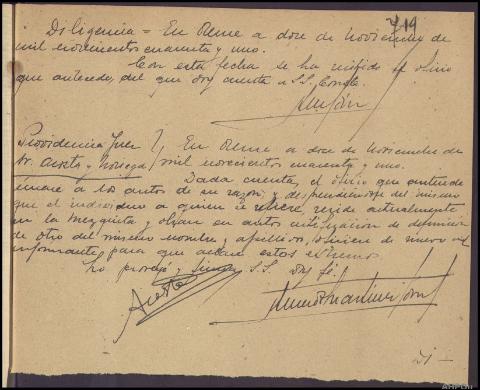 719
Diligencia = En Orense a doce de Noviembre de
mil novecientos cuarenta y uno.
Con esta fecha se ha recibido el oficio
que antecede, del que doy cuenta a S.S. Conste.
Providencia Juez } En Orense a doce de Noviembre de
Sr. Acosta y Noriega } mil novecientos cuarenta y uno.
Dada cuenta, el oficio que antecede
únase a los autos de su razón, y desprendiéndose del mismo
que el individuo a quien se refiere, reside actualmente
en la Mezquita y obran en autos certificación de defunción
de otro del mismo nombre y apellidos, ofíciese de nuevo al
informante, para que aclare estos extremos.
Lo proveyó y firma S.S. doy fé.
Acosta